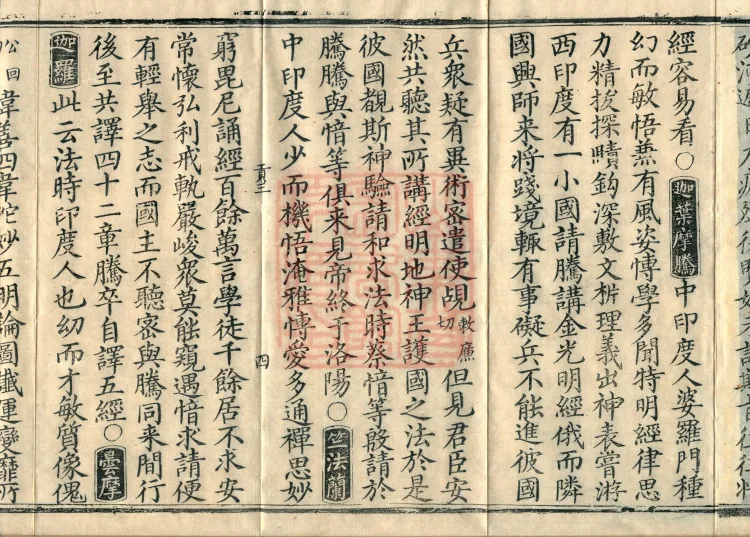 經容易看〇迦葉摩騰中印度人婆羅門種
幼而敏悟兼有風姿博學多聞特明經律思
力精拔探賾鈎深敷文析理義出神表嘗游
西印度有一小國請騰講金光明經俄而隣
國興師来將踐境輒有事礙兵不能進彼國
兵衆疑有異術密遣使覘敕廉切但見君臣安
然共聽其所講經明地神王護國之法於是
彼國覩斯神驗請和求法時蔡愔等殷請於
騰騰與愔等俱来見帝終于洛陽〇竺法蘭
中印度人少而機悟淹雅愽愛多通禪思妙
四
窮毘尼誦經百餘萬言學徒千餘居不求安
常懷弘利戒軌嚴峻衆莫能窺遇愔求請便
有輕舉之志而國主不聽密與騰同来間行
後至共譯四十二章騰卒自譯五經〇曇摩
迦羅此云法時印度人也幼而才敏質像傀
善四韋陀妙五明論圖讖運變靡所